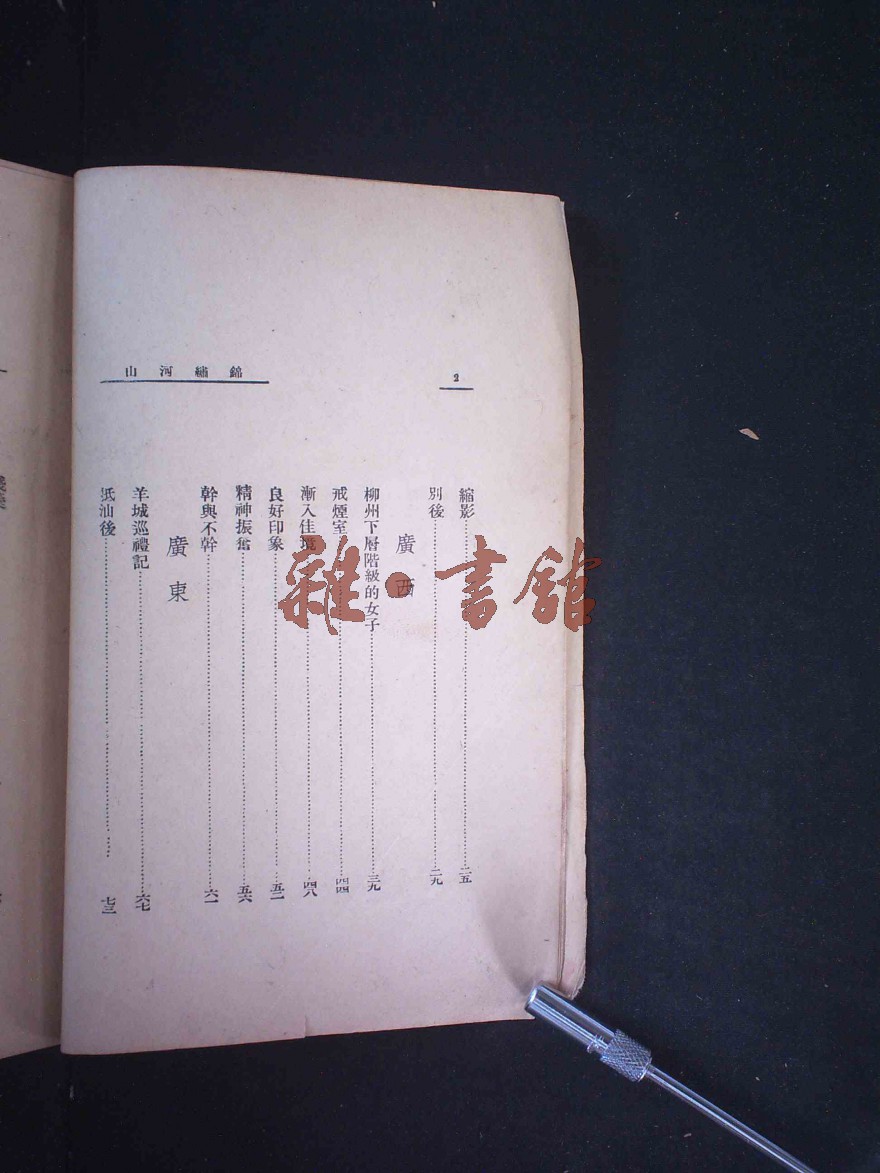 2
錦繡河山
縮影……二五
別後……二九
廣西
柳州下層階級的女子……三九
戒煙室……四四
漸入佳境……四八
良好印象……五二
精神振奮……五六
幹與不幹……六一
廣東
羊城巡禮記……六七
抵汕後……七三
雜·書館